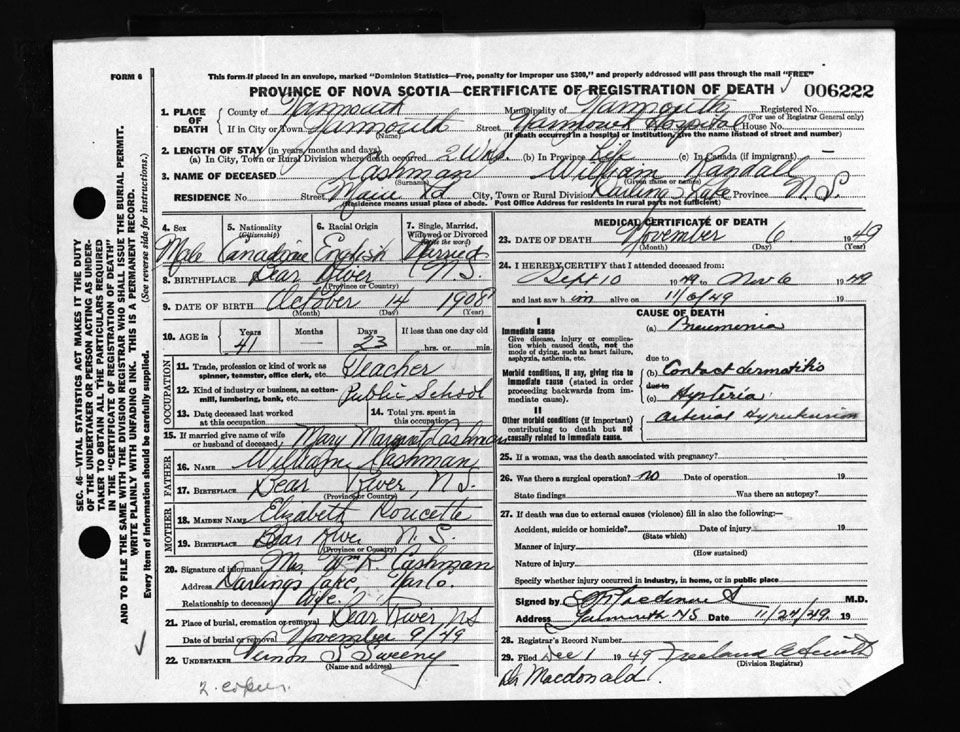 FORM 6
This form if placed in an envelope, marked "Dominion Statistics—Free, penalty for improper use $300," and properly addressed will pass through the mail "FREE"
PROVINCE OF NOVA SCOTIA—CERTIFICATE OF REGISTRATION OF DEATH 006222
1. PLACE OF DEATH County of Yarmouth Municipality of Yarmouth Registered No.
(For use of Registrar General only)
If in City or Town Yarmouth Street Yarmouth Hospital House No.
(Name) (If death occurred in a hospital or institution, give the name instead of street and number)
2. LENGTH OF STAY (in years, months and days)
(a) In City, Town or Rural Division where death occurred 2 Wks. (b) In Province Life (c) In Canada (if immigrant) —
3. NAME OF DECEASED Cashman William Randall
(Surname) (Given name or names)
RESIDENCE No. Street Main Rd City, Town or Rural Division Darlings Lake Province N.S.
(Residence means usual place of abode. Post Office Address for residents in rural parts not sufficient)
4. Sex 5. Nationality (Citizenship) 6. Racial Origin 7. Single, Married, Widowed or Divorced (write the word)
Male Canadian English Married
8. BIRTHPLACE Bear River N.S.
(Province or Country)
9. DATE OF BIRTH October 14 1908
(Month) (Day) (Year)
10. AGE in Years Months Days If less than one day old
41 — 23 hrs. or min.
OCCUPATION
11. Trade, profession or kind of work as spinner, teamster, office clerk, etc. Teacher
12. Kind of industry or business, as cotton-mill, lumbering, bank, etc. Public School
13. Date deceased last worked at this occupation 14. Total yrs. spent in this occupation
15. If married give name of wife or husband of deceased Mary Margaret Cashman
FATHER
16. NAME William Cashman
17. BIRTHPLACE Bear River, N.S.
(Province or Country)
MOTHER
18. MAIDEN NAME Elizabeth Doucette
19. BIRTHPLACE Bear River N.S.
(Province or Country)
20. Signature of informant Mrs. W. R. Cashman
Address Darlings Lake, Yar Co.
Relationship to deceased Wife
21. Place of burial, cremation or removal Bear River NS
Date of burial or removal November 9/49
22. UNDERTAKER Vernon S Sweeny
(Name and address)
2 copies.
MEDICAL CERTIFICATE OF DEATH
23. DATE OF DEATH November 6 1949
(Month) (Day) (Year)
24. I HEREBY CERTIFY that I attended deceased from:
Sept 10 1949 to Nov 6 1949
and last saw him alive on 11/6/49 19
CAUSE OF DEATH
I
Immediate cause
Give disease, injury or complication which caused death, not the mode of dying, such as heart failure, asphyxia, asthenia, etc.
(a) Pneumonia
due to
Morbid conditions, if any, giving rise to immediate cause (stated in order proceeding backwards from immediate cause).
(b) Contact dermatitis
due to
(c) Hysteria
II
Other morbid conditions (if important) contributing to death but not causally related to immediate cause.
Arterial Hypertension
25. If a woman, was the death associated with pregnancy?
26. Was there a surgical operation? no Date of operation 19
State findings Was there an autopsy?
27. If death was due to external causes (violence) fill in also the following:—
Accident, suicide or homicide? Date of injury 19
(State which)
Manner of injury
(How sustained)
Nature of injury
Specify whether injury occurred in industry, in home, or in public place
Signed by M.D.
Address Yarmouth NS Date 11/24/49. 19
28. Registrar's Record Number
29. Filed Dec 1 1949
(Division Registrar)
Dr Macdonald.
SEC. 46—VITAL STATISTICS ACT MAKES IT THE DUTY
OF THE UNDERTAKER OR PERSON ACTING AS UNDER-
TAKER TO OBTAIN ALL THE PARTICULARS REQUIRED
IN THE "CERTIFICATE OF REGISTRATION OF DEATH"
AND TO FILE THE SAME WITH THE DIVISION REGISTRAR WHO SHALL ISSUE THE BURIAL PERMIT.
WRITE PLAINLY WITH UNFADING INK. THIS IS A PERMANENT RECORD.
Every item of information should be carefully supplied. (See reverse side for instructions.)